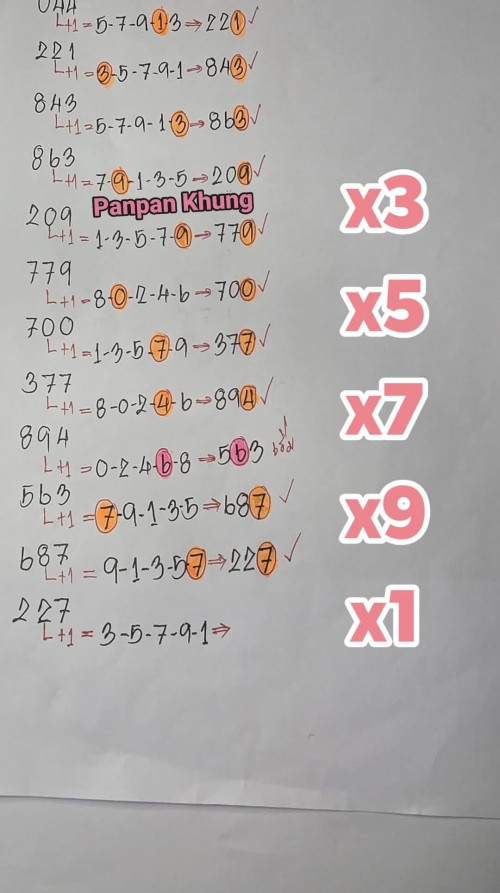 044
L+1=5-7-9-1-3⇒221✓
221
L+1=3-5-7-9-1→843✓
843
L+1=5-7-9-1-3→863✓
863
L+1=7-9-1-3-5→209✓
Panpan Khung
209
L+1=1-3-5-7-9→779✓
x3
779
L+1=8-0-2-4-6⇒700✓
x5
700
L+1=1-3-5-7-9→377✓
377
L+1=8-0-2-4-6→894✓
x7
894
L+1=0-2-4-6-8⇒563
563
L+1=7-9-1-3-5⇒687✓
x9
687
L+1=9-1-3-5-7→227✓
227
L+1=3-5-7-9-1⇒
x1